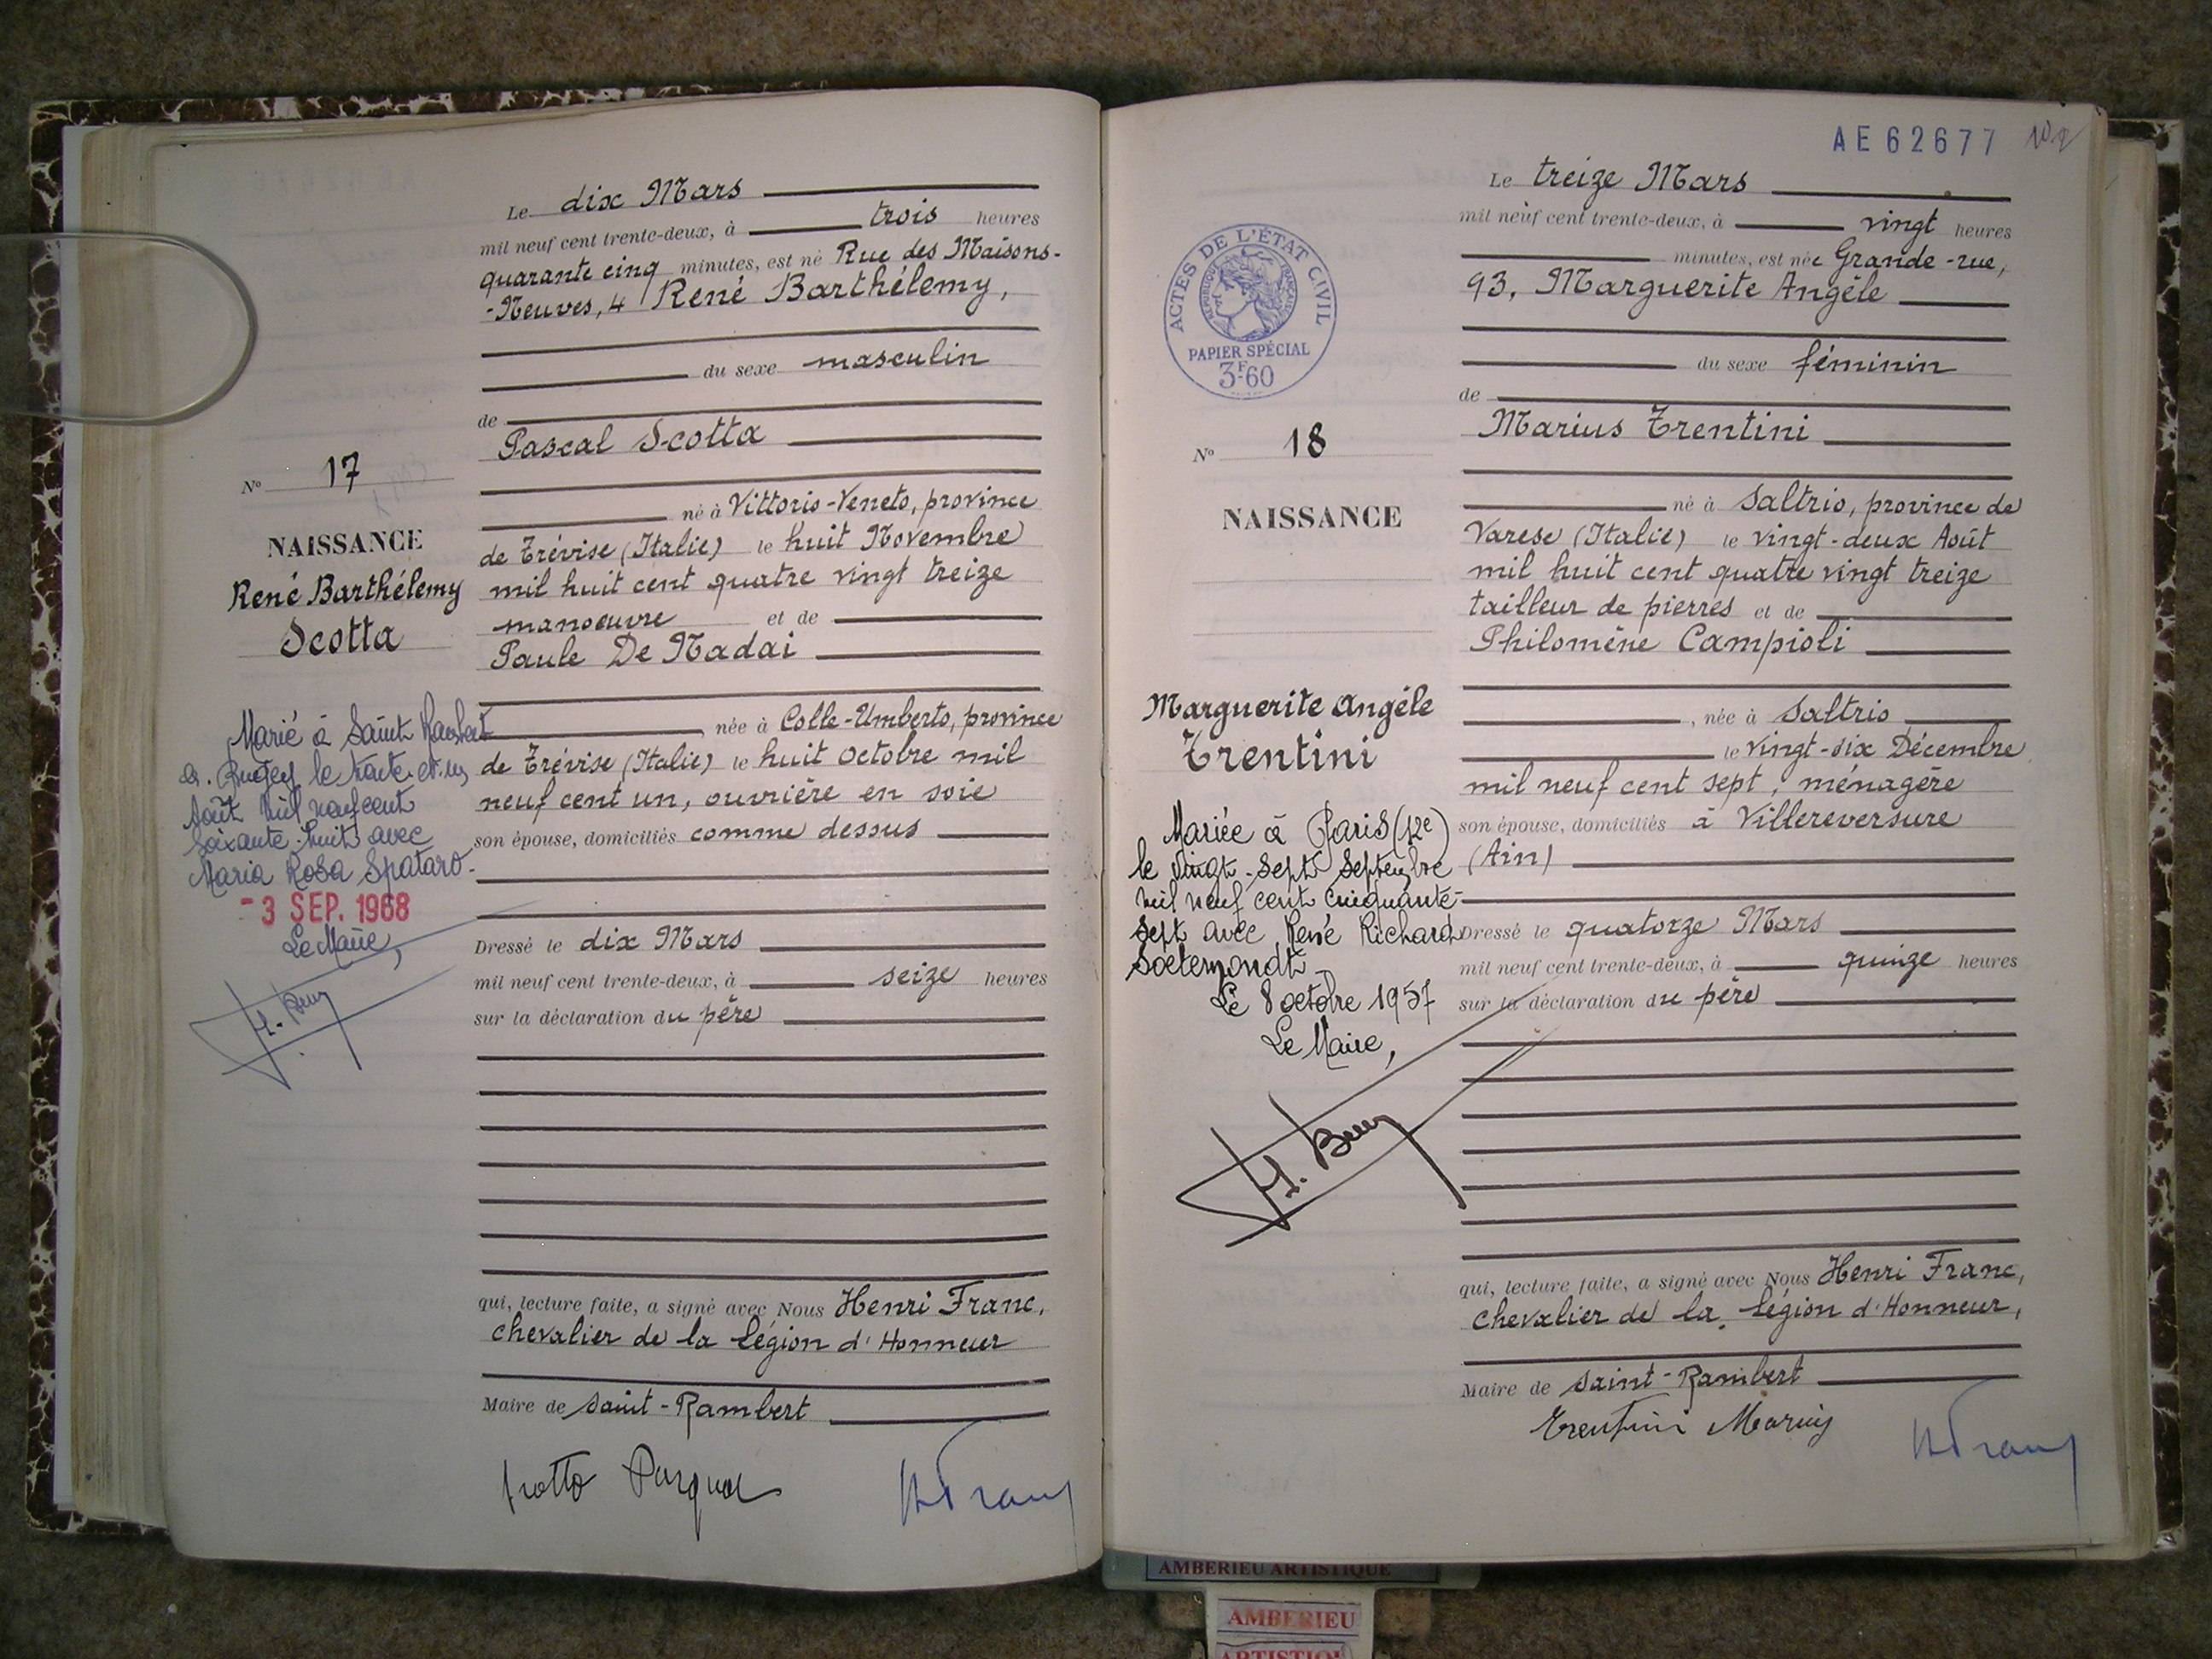 Le dix Mars
mil neuf cent trente-deux, à trois heures
quarante cinq minutes, est né Rue des Maisons-
-Neuves, 4 René Barthélemy,
du sexe masculin
de
Pascal Scotta
né à Vittorio-Veneto, province
de Trévise (Italie) le huit Novembre
mil huit cent quatre vingt treize
manoeuvre et de
Paule De Nadai
née à Colle-Umberto, province
de Trévise (Italie) le huit octobre mil
neuf cent un, ouvrière en soie
son épouse, domiciliés comme dessus
Dressé le dix Mars
mil neuf cent trente-deux, à seize heures
sur la déclaration du père
qui, lecture faite, a signé avec Nous Henri Franc,
chevalier de la légion d'Honneur
Maire de Saint-Rambert
N° 17
NAISSANCE
René Barthélemy
Scotta
Marié à Saint Rambert
en Bugey le trente et un
Août mil neuf cent
soixante-huit avec
Maria Rosa Spataro-
-3 SEP. 1968
Le Maire,
AE62677
Le treize Mars
mil neuf cent trente-deux, à vingt heures
minutes, est née Grande-rue,
93, Marguerite Angèle
du sexe féminin
de
Marius Trentini
né à Saltrio, province de
Varese (Italie) le vingt-deux Août
mil huit cent quatre vingt treize
tailleur de pierres et de
Philomène Campioli
, née à Saltrio
le vingt-six Décembre
mil neuf cent sept, ménagère
son épouse, domiciliés à Villereversure
(Ain)
Dressé le quatorze Mars
mil neuf cent trente-deux, à quinze heures
sur la déclaration du père
qui, lecture faite, a signé avec Nous Henri Franc,
chevalier de la légion d'Honneur,
Maire de Saint-Rambert
Trentini Marius
ACTES DE L'ÉTAT CIVIL
RÉPUBLIQUE FRANÇAISE
PAPIER SPÉCIAL
3F60
N° 18
NAISSANCE
Marguerite Angèle
Trentini
Mariée à Paris (12e)
le vingt-sept Septembre
mil neuf cent cinquante-
sept avec René Richard
Le 8 octobre 1957
Le Maire,
AMBERIEU ARTISTIQUE
AMBERIEU